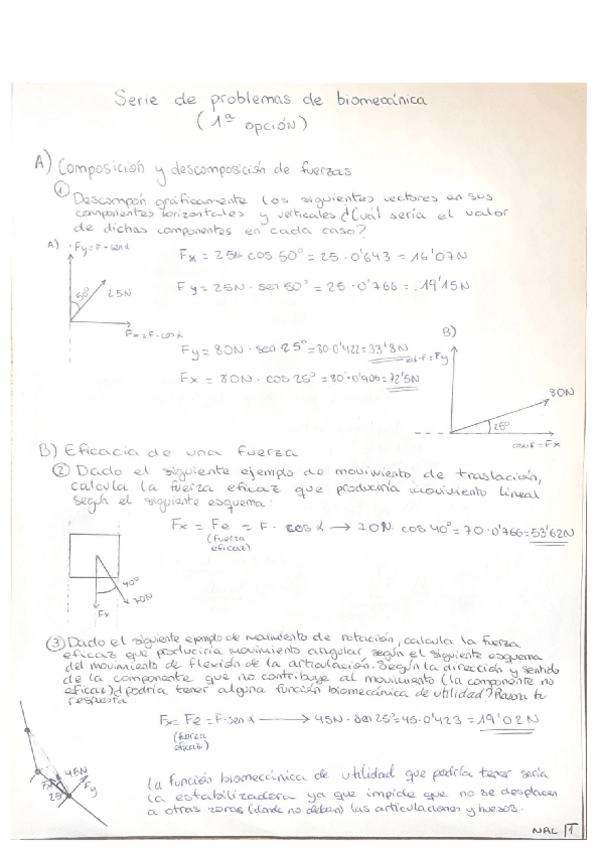 Serie de problemas de biomecánica
(1ª opción)
A) Composición y descomposición de fuerzas
① Descompón gráficamente los siguientes vectores en sus
componentes horizontales y verticales ¿Cuál sería el valor
de dichas componentes en cada caso?
A) Fy = F · sen α
Fx = 25N · cos 50° = 25 · 0'643 = 16'07N
50° 25N
Fy = 25N · sen 50° = 25 · 0'766 = 19'15N
Fx = F · cos α
B)
Fy = 80N · sen 25° = 80 · 0'422 = 33'8N
· F = Fy
Fx = 80N · cos 25° = 80 · 0'906 = 72'5N
80N
25°
cos · F = Fx
B) Eficacia de una fuerza
② Dado el siguiente ejemplo de movimiento de traslación,
calcula la fuerza eficaz que produciría movimiento lineal
según el siguiente esquema:
Fx = Fe = F · cos α → 70N · cos 40° = 70 · 0'766 = 53'62N
(fuerza
eficaz)
40°
70N
Fx
③ Dado el siguiente ejemplo de movimiento de rotación, calcula la fuerza
eficaz que produciría movimiento angular según el siguiente esquema
del movimiento de flexión de la articulación. Según la dirección y sentido
de la componente que no contribuye al movimiento (la componente no
eficaz) ¿podría tener alguna función biomecánica de utilidad? Razona tu
respuesta.
Fx = Fe = F · sen α → 45N · sen 25° = 45 · 0'423 = 19'02N
(fuerza
eficaz)
45N
Fx
25°
Fy
La función biomecánica de utilidad que podría tener sería
la estabilizadora ya que impide que no se desplacen
a otras zonas (donde no deben) las articulaciones y huesos.
NAL 1